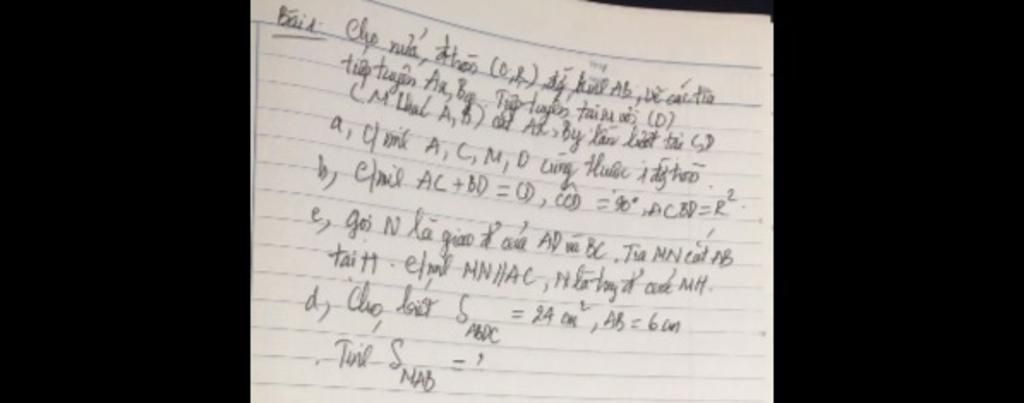 Bài 1: Cho nửa đ.tròn (O,R) đg kính AB, vẽ các tia
tiếp tuyến Ax, By. Tiếp tuyến tại M với (O)
(M khác A, B) cắt Ax, By lần lượt tại C, D
a, C/minh A, C, M, O cùng thuộc 1 đg tròn.
b, C/minh AC + BD = CD, COD = 90°, AC.BD = R².
c, gọi N là giao đ' của AD và BC. Tia MN cắt AB
tại H. C/minh MN // AC, N là trung đ' của MH.
d, Cho biết S ABDC = 24 cm², AB = 6 cm
. Tính S MAB = ?